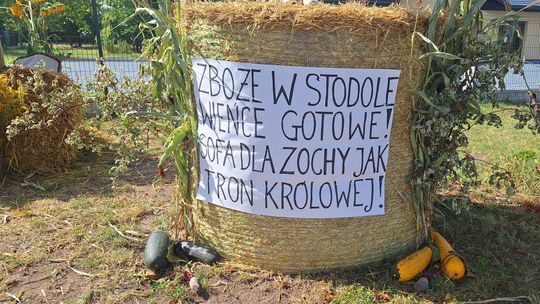 ZBOŻE W STODOLE
WIEŃCE GOTOWE!
SOFA DLA ZOCHY JAK
TRON KRÓLOWEJ!